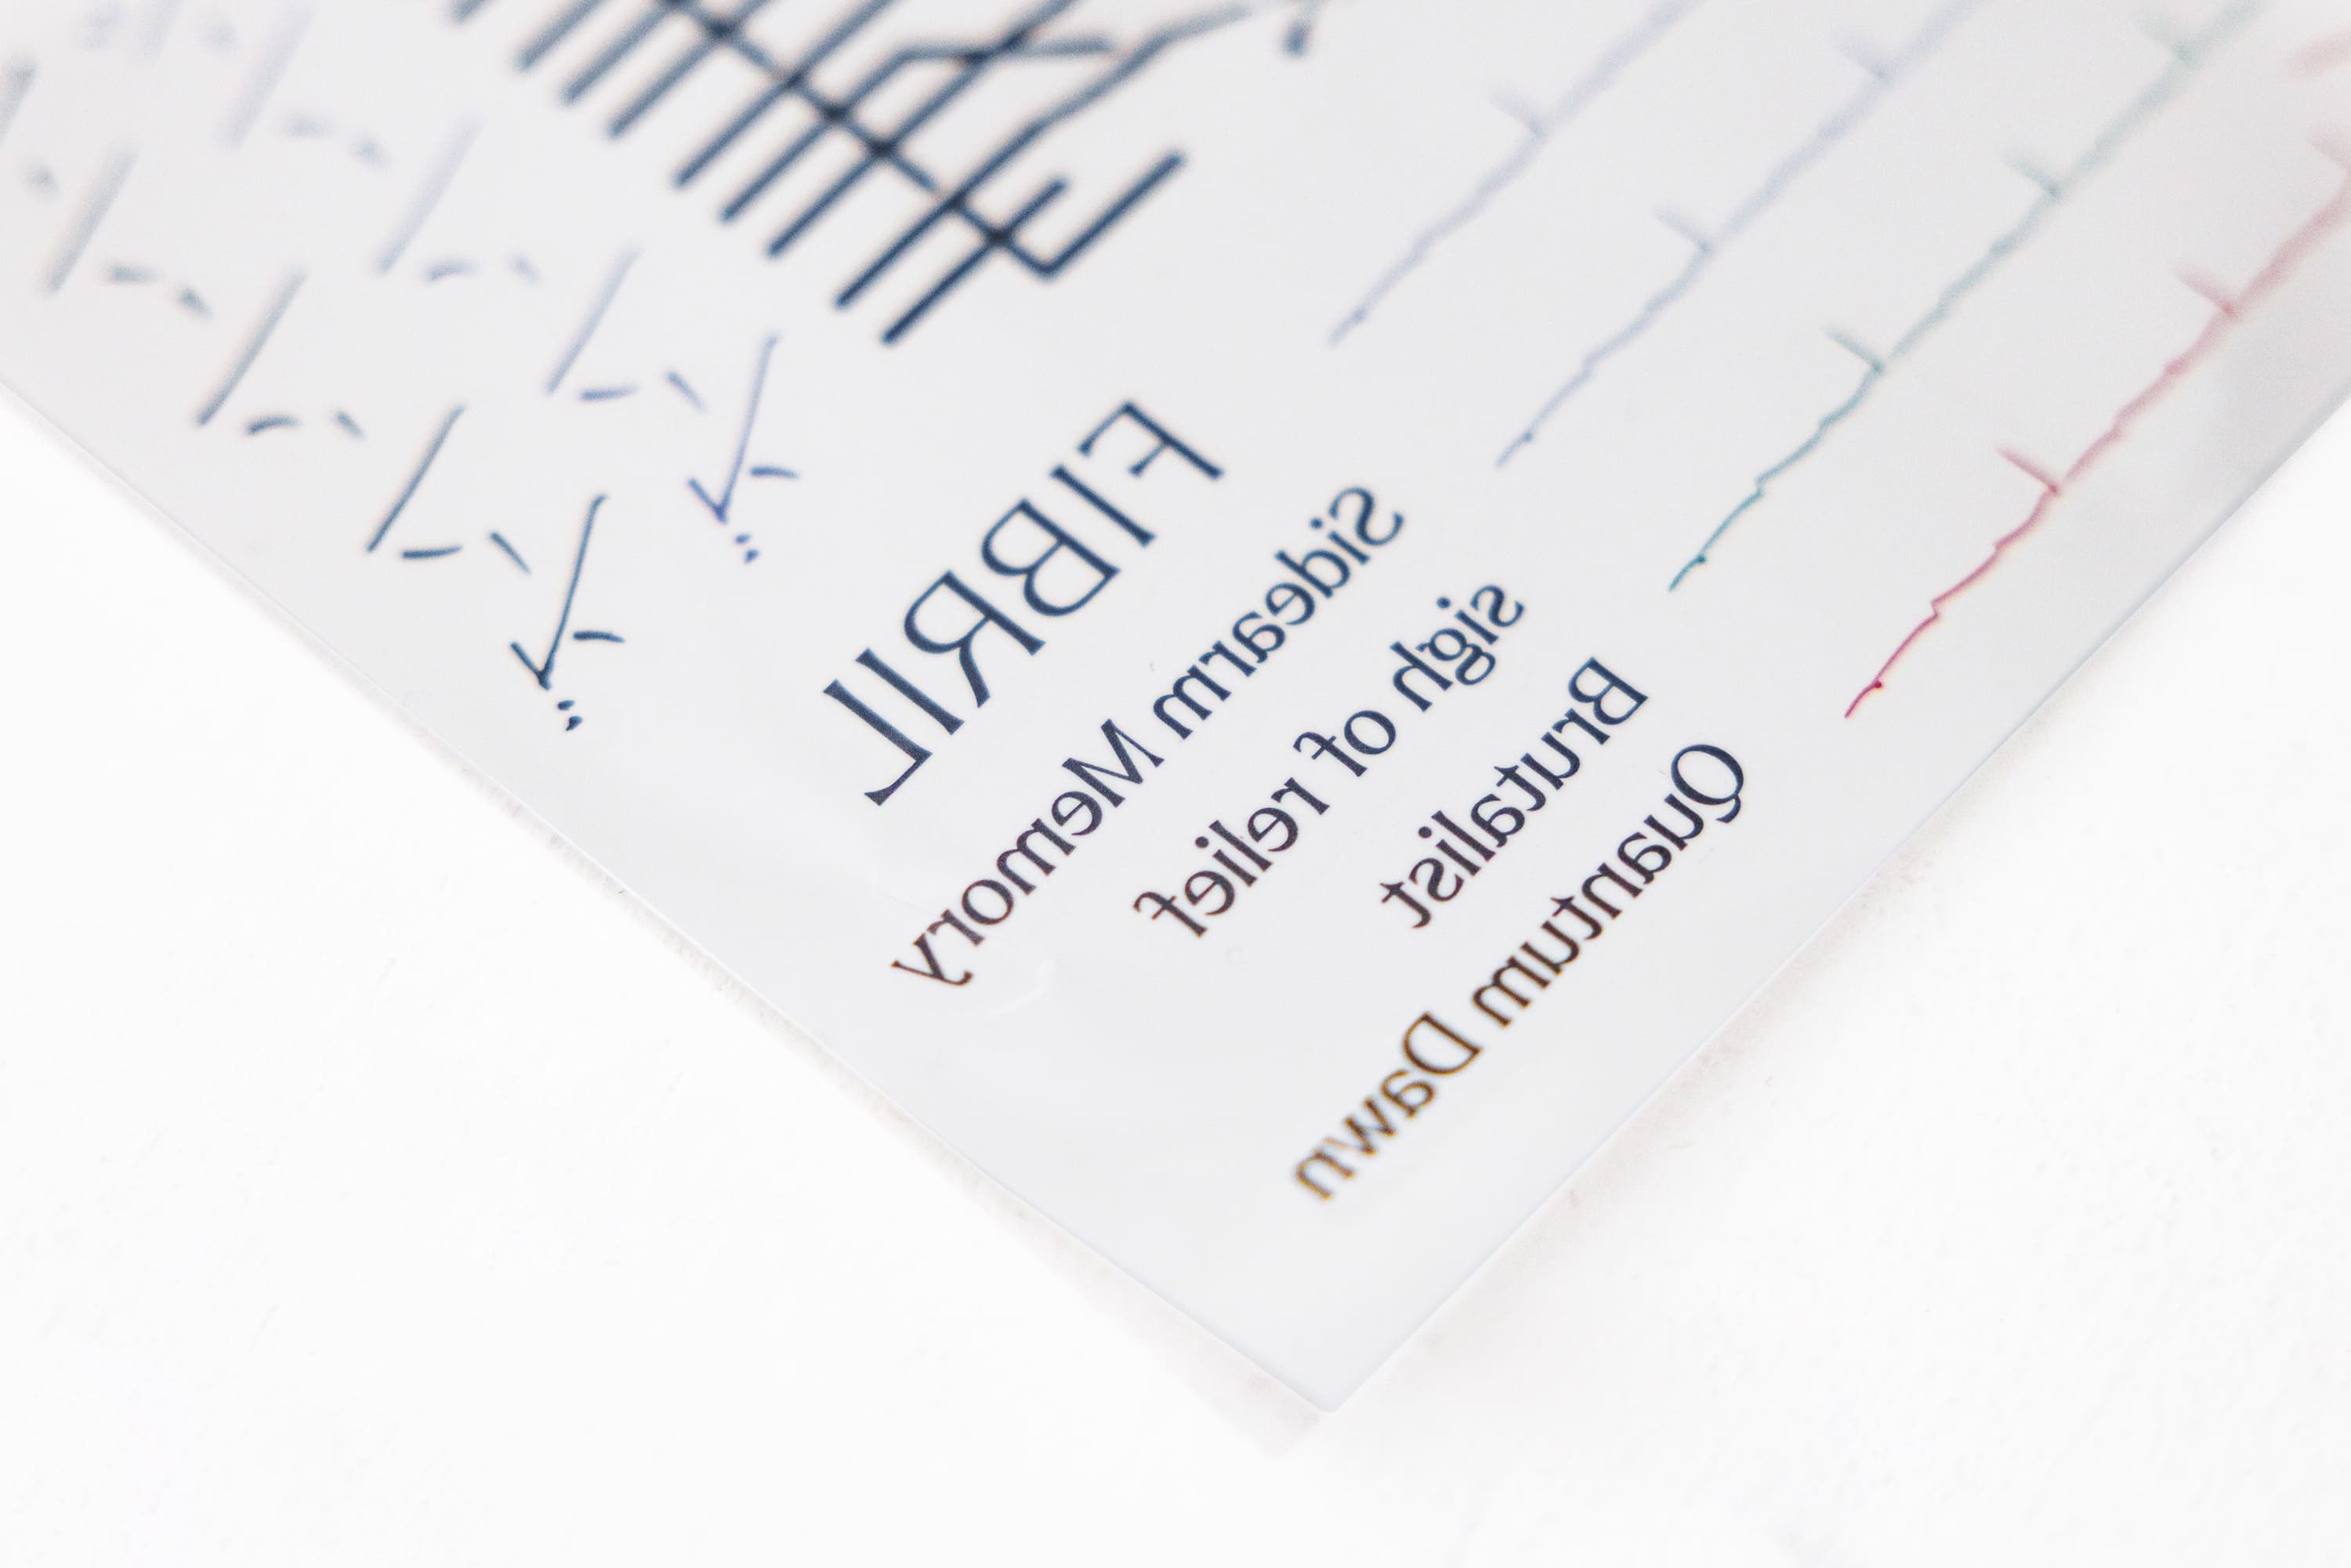 FIBRIL
Sidearm Memory
sigh of relief
Brutalist
Quantum Dawn